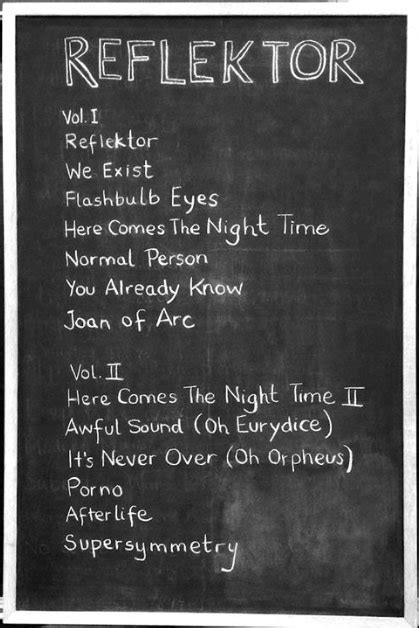 REFLEKTOR
Vol. I
Reflektor
We Exist
Flashbulb Eyes
Here Comes The Night Time
Normal Person
You Already Know
Joan of Arc
Vol. II
Here Comes The Night Time II
Awful Sound (Oh Eurydice)
It's Never Over (Oh Orpheus)
Porno
Afterlife
Supersymmetry